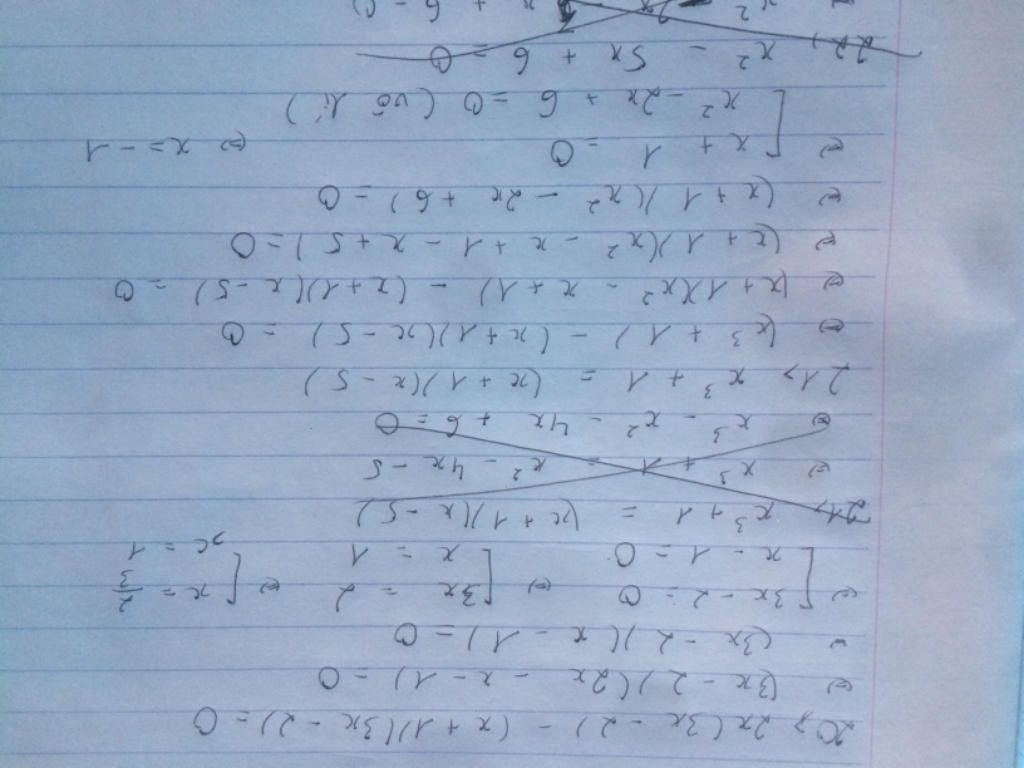 20> 2x(3x - 2) - (x + 1)(3x - 2) = 0
⇔ (3x - 2)(2x - x - 1) = 0
⇔ (3x - 2)(x - 1) = 0
⇔ [ 3x - 2 = 0 ⇔ [ 3x = 2 ⇔ [ x = 2/3
x - 1 = 0 x = 1 x = 1
21> x³ + 1 = (x + 1)(x - 5)
⇔ x³ + 1 = x² - 4x - 5
⇔ x³ - x² - 4x + 6 = 0
21> x³ + 1 = (x + 1)(x - 5)
⇔ (x³ + 1) - (x + 1)(x - 5) = 0
⇔ (x + 1)(x² - x + 1) - (x + 1)(x - 5) = 0
⇔ (x + 1)(x² - x + 1 - x + 5) = 0
⇔ (x + 1)(x² - 2x + 6) = 0
⇔ [ x + 1 = 0 ⇔ x = -1
x² - 2x + 6 = 0 (vô lí)
22> x² - 5x + 6 = 0